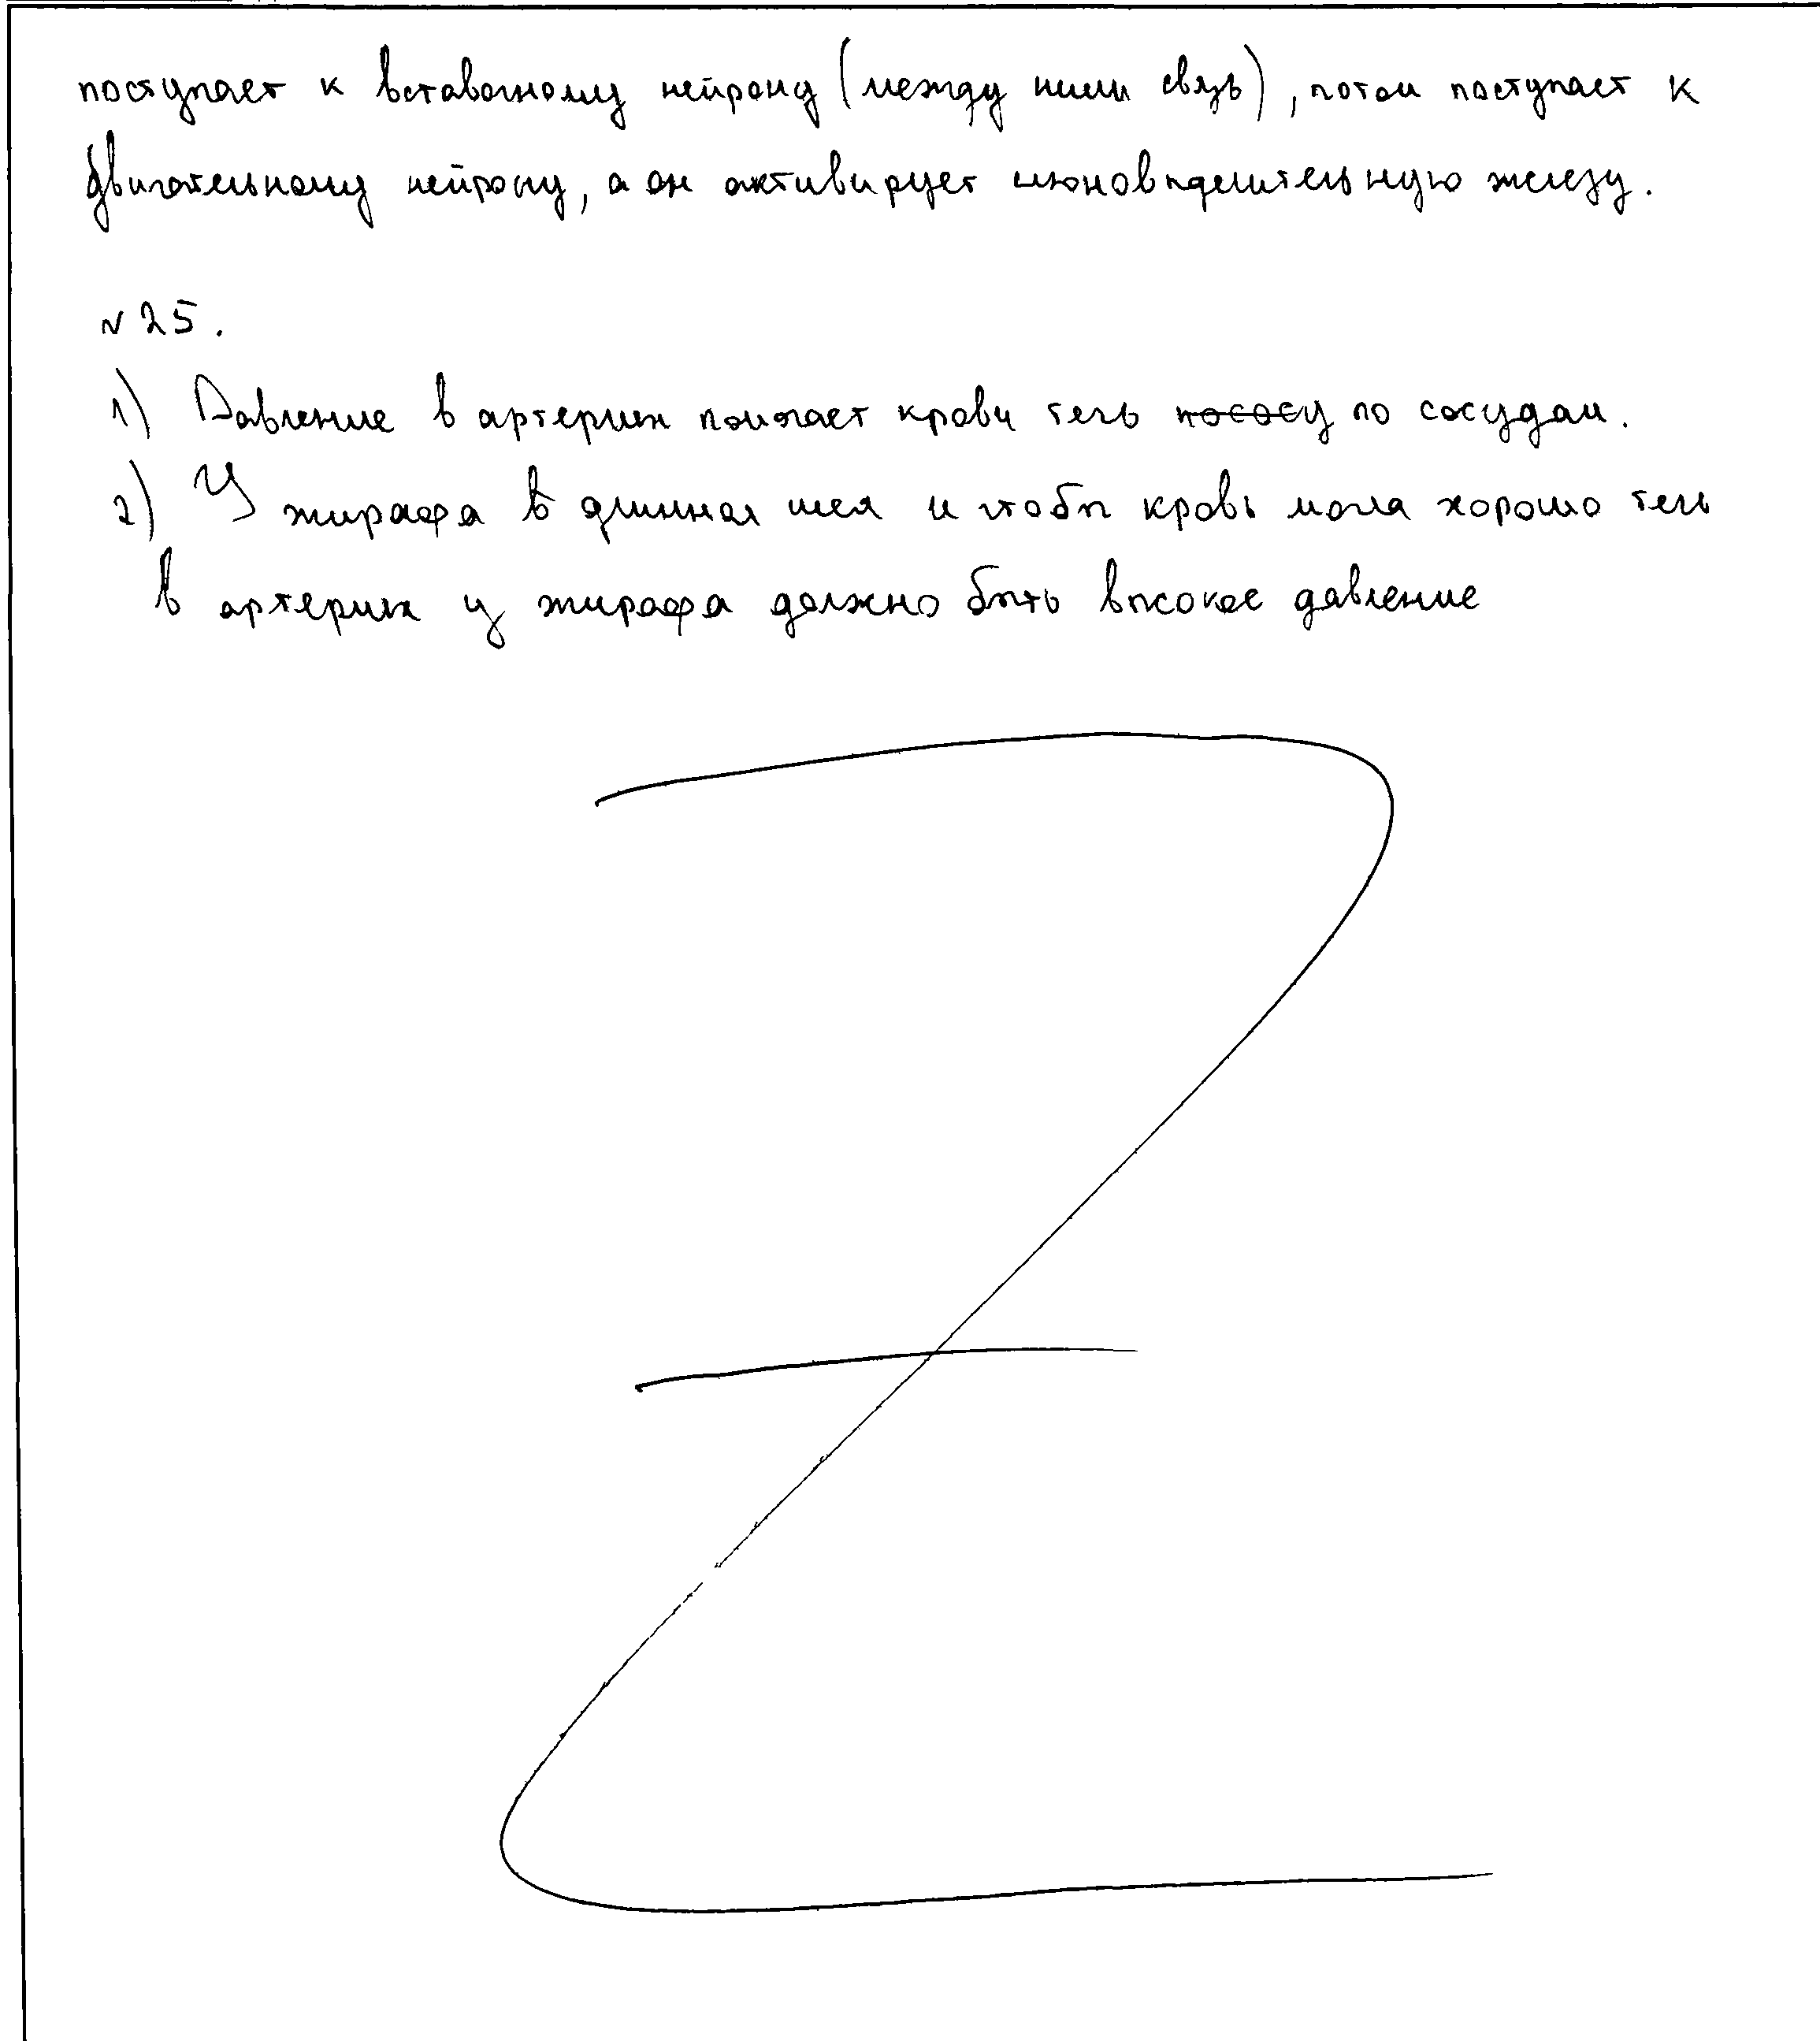 поступает к вставочному нейрону (между ними связь), потом поступает к
двигательному нейрону, а он активирует слюновыделительную железу.
№ 25.
1) Давление в артериях помогает крови течь насосу по сосудам.
2) У жирафа в длинная шея и чтобы кровь могла хорошо течь
в артериях у жирафа должно быть высокое давление